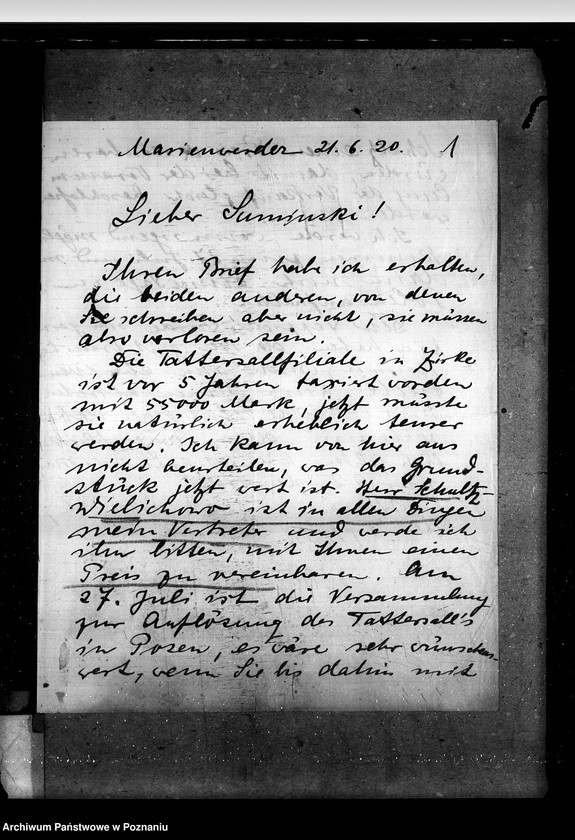 Marienwerder 21. 6. 20. 1
Lieber Suminski!
Ihren Brief habe ich erhalten,
die beiden anderen, von denen
Sie schreiben aber nicht, sie müssen
also verloren sein.
Die Tattersallfiliale in Zirke
ist vor 5 Jahren taxiert worden
mit 55000 Mark, jetzt müsste
sie natürlich erheblich teurer
werden. Ich kann von hier aus
nicht beurteilen, was das Grund-
stück jetzt wert ist. Herr Schultz-
Wielichowo ist in allen Dingen
mein Vertreter und werde ich
ihn bitten, mit Ihnen einen
Preis zu vereinbaren. Am
27. Juli ist die Versammlung
zur Auflösung des Tattersall's
in Posen, es wäre sehr wünschens-
wert, wenn Sie bis dahin mit
Archiwum Państwowe w Poznaniu